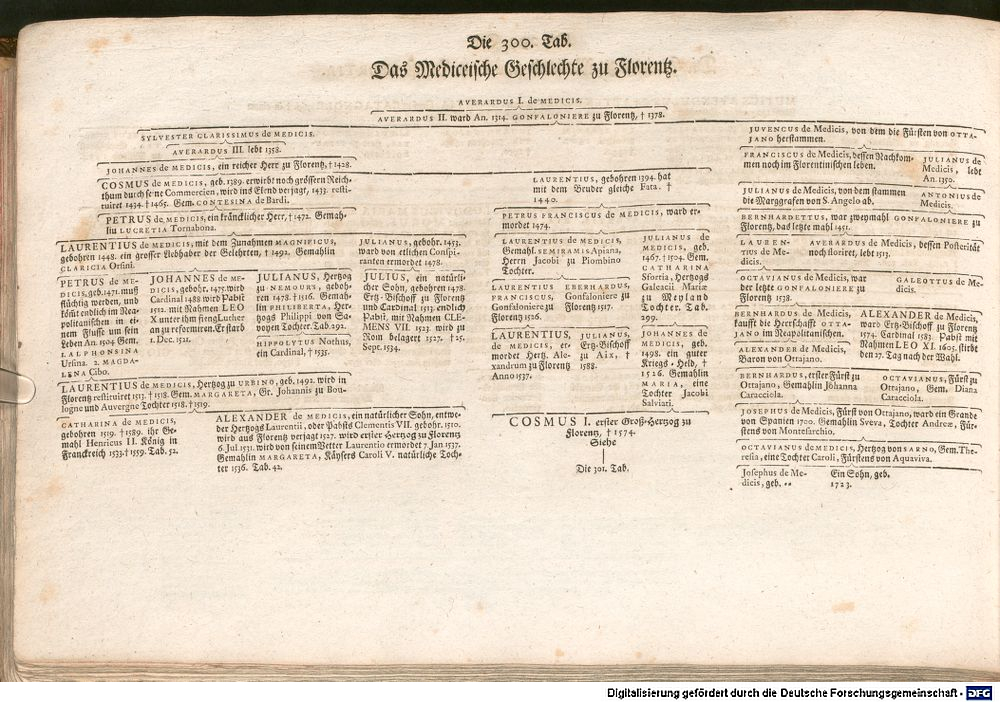 Die 300. Tab.
Das Mediceische Geschlechte zu Florentz.
AVERARDUS I. de MEDICIS.
AVERARDUS II. ward An. 1314. GONFALONIERE zu Florentz, † 1378.
SYLVESTER CLARISSIMUS de MEDICIS.
AVERARDUS III. lebt 1358.
JOHANNES de MEDICIS, ein reicher Herr zu Florentz, † 1428.
COSMUS de MEDICIS, geb. 1389. erwirbt noch grössern Reich-
thum durch seine Commercien, wird ins Elend verjagt, 1433. resti-
tuiret 1434. † 1465. Gem. CONTESINA de Bardi.
LAURENTIUS, gebohren 1394. hat
mit dem Bruder gleiche Fata. †
1440.
PETRUS de MEDICIS, ein kräncklicher Herr, † 1472. Gemah-
lin LUCRETIA Tornabona.
PETRUS FRANCISCUS de MEDICIS, ward er-
mordet 1474.
LAURENTIUS de MEDICIS, mit dem Zunahmen MAGNIFICUS,
gebohren 1448. ein grosser Liebhaber der Gelehrten, † 1492. Gemahlin
CLARICIA Orsini.
JULIANUS, gebohr. 1453.
ward von etlichen Conspi-
ranten ermordet 1478.
LAURENTIUS de MEDICIS,
Gemahl. SEMIRAMIS Apiana,
Herrn Jacobi zu Piombino
Tochter.
JULIANUS de
MEDICIS, geb.
1467. † 1504. Gem.
CATHARINA
Sfortia, Hertzogs
Galeacii Mariæ
zu Meyland
Tochter. Tab.
299.
PETRUS de ME-
DICIS, geb. 1471. muß
flüchtig werden, und
kömt endlich im Nea-
politanischen in ei-
nem Flusse um sein
Leben An. 1504. Gem.
1. ALPHONSINA
Ursina. 2. MAGDA-
LENA Cibo.
JOHANNES de ME-
DICIS, gebohr. 1475. wird
Cardinal 1488 wird Pabst
1512. mit Nahmen LEO
X unter ihm fieng Luther
an zu reformiren. Er starb
1. Dec. 1521.
JULIANUS, Hertzog
zu NEMOURS, geboh-
ren 1478. † 1516. Gemah-
lin PHILIBERTA, Her-
tzogs Philippi von Sa-
voyen Tochter. Tab. 292.
HIPPOLYTUS Nothus,
ein Cardinal, † 1535.
JULIUS, ein natürli-
cher Sohn, gebohren 1478.
Ertz-Bischoff zu Florentz
und Cardinal 1513. endlich
Pabst, mit Nahmen CLE-
MENS VII. 1523. wird zu
Rom belagert 1527. † 25.
Sept. 1534.
LAURENTIUS
FRANCISCUS,
Gonfaloniere zu
Florentz 1516.
EBERHARDUS,
Gonfaloniere zu
Florentz 1517.
LAURENTIUS,
de MEDICIS, er-
mordet Hertz. Ale-
xandrum zu Florentz
Anno 1537.
JULIANUS,
Ertz-Bischoff
zu Aix, †
1588.
JOHANNES de
MEDICIS, geb.
1498. ein guter
Kriegs-Held, †
1526. Gemahlin
MARIA, eine
Tochter Jacobi
Salviati.
LAURENTIUS de MEDICIS, Hertzog zu URBINO, geb. 1492. wird in
Florentz restituiret 1513. † 1518. Gem. MARGARETA, Gr. Johannis zu Bou-
logne und Auvergne Tochter 1518. † 1519.
CATHARINA de MEDICIS,
gebohren 1519. † 1589. ihr Ge-
mahl Henricus II. König in
Franckreich 1533. † 1559. Tab. 52.
ALEXANDER de MEDICIS, ein natürlicher Sohn, entwe-
der Hertzogs Laurentii, oder Pabsts Clementis VII. gebohr. 1510.
wird aus Florentz verjagt 1527. wird erster Hertzog zu Florentz
6. Jul. 1531. wird von seinem Vetter Laurentio ermordet 7. Jan. 1537.
Gemahlin MARGARETA, Käysers Caroli V. natürliche Toch-
ter 1536. Tab. 42.
COSMUS I. erster Groß-Hertzog zu
Florentz, † 1574.
Siehe
Die 301. Tab.
JUVENCUS de Medicis, von dem die Fürsten von OTTA-
JANO herstammen.
FRANCISCUS de Medicis, dessen Nachkom-
men noch im Florentinischen leben.
JULIANUS de
Medicis, lebt
An. 1350.
JULIANUS de Medicis, von dem stammen
die Marggrafen von S. Angelo ab.
ANTONIUS de
Medicis.
BERNHARDETTUS, war zweymahl GONFALONIERE zu
Florentz, das letzte mahl 1451.
LAUREN-
TIUS de Me-
dicis.
AVERARDUS de Medicis, dessen Posterität
noch floriret, lebt 1513.
OCTAVIANUS de Medicis, war
der letzte GONFALONIERE zu
Florentz 1538.
GALEOTTUS de Me-
dicis.
BERNHARDUS de Medicis,
kaufft die Herrschafft OTTA-
JANO im Neapolitanischen.
ALEXANDER de Medicis,
ward Ertz-Bischoff zu Florentz
1574. Cardinal 1583. Pabst mit
Nahmen LEO XI. 1605. stirbt
den 27. Tag nach der Wahl.
ALEXANDER de Medicis,
Baron von Ottrajano.
BERNHARDUS, erster Fürst zu
Ottajano, Gemahlin Johanna
Caracciola.
OCTAVIANUS, Fürst zu
Ottrajano, Gem. Diana
Caracciola.
JOSEPHUS de Medicis, Fürst von Ottrajano, ward ein Grande
von Spanien 1700. Gemahlin Sveva, Tochter Andreæ, Für-
stens von Montesarchio.
OCTAVIANUS de MEDICIS, Hertzog von SARNO, Gem. The-
resia, eine Tochter Caroli, Fürstens von Aquaviva.
Josephus de Me-
dicis, geb. --
Ein Sohn, geb.
1723.
Digitalisierung gefördert durch die Deutsche Forschungsgemeinschaft - DFG